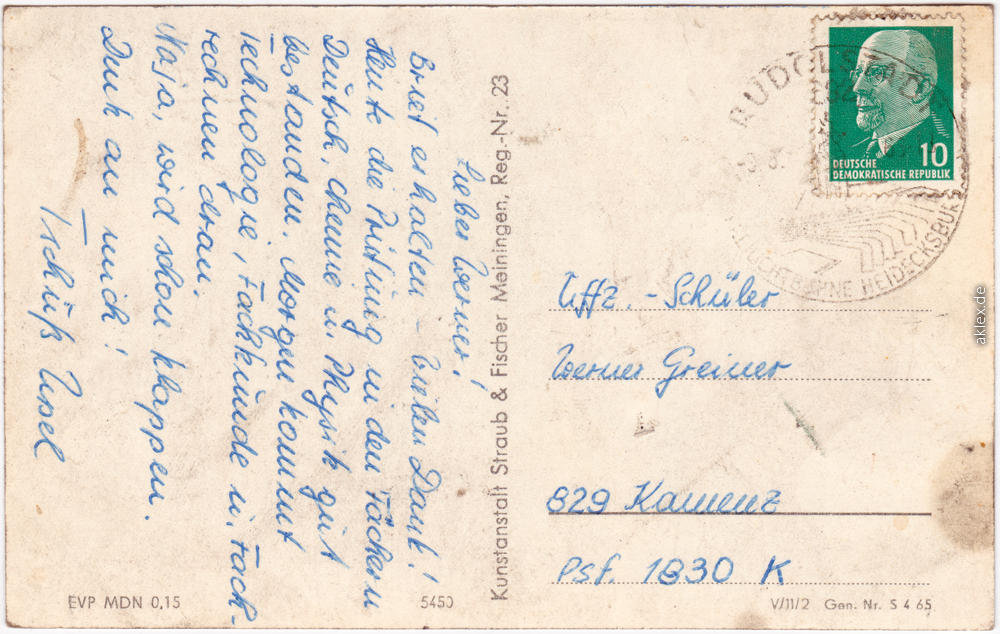 Lieber Werner!
Brief erhalten - vielen Dank!
Heute die Prüfung in den Fächern
Deutsch, Chemie u. Physik gut
bestanden. Morgen kommt
Technologie, Fachkunde u. Fach-
rechnen dran.
Naja, wird schon klappen.
Denk an mich!
Tschüß Ursel
EVP MDN 0,15
5450
Kunstanstalt Straub & Fischer Meiningen, Reg.-Nr. 23
RUDOLSTADT
HEIDECKSBURG
DEUTSCHE
DEMOKRATISCHE REPUBLIK
10
Uffz.-Schüler
Werner Greiner
829 Kamenz
Psf. 1830 K
V/11/2 Gen. Nr. S 4 65
aklex.de